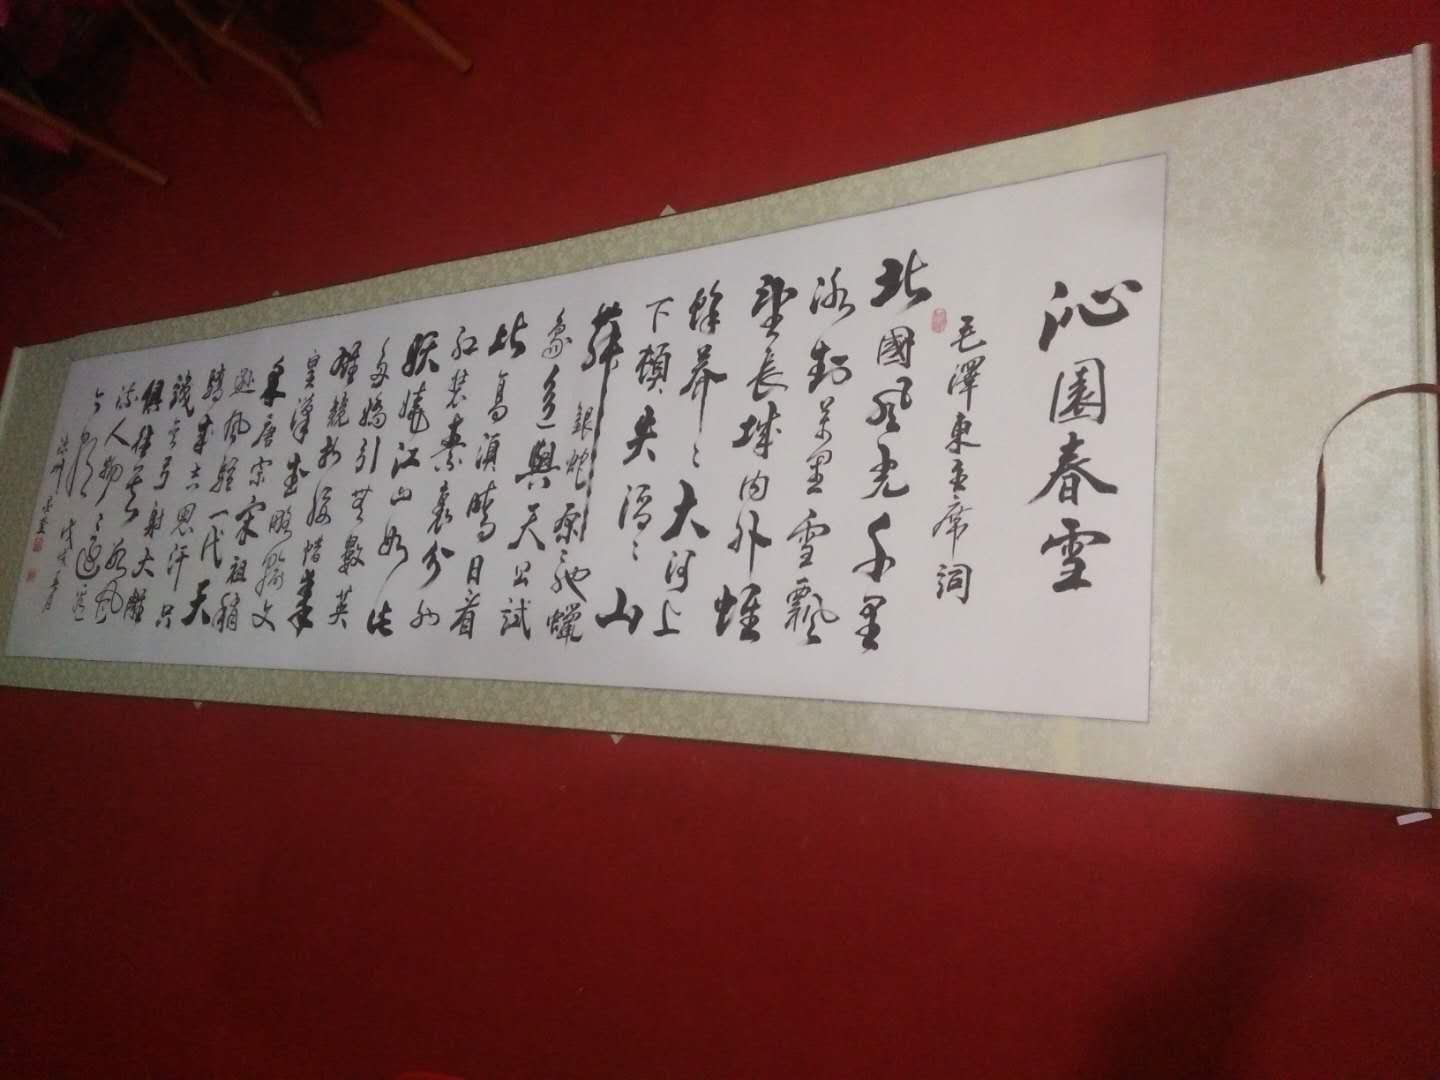 沁園春雪
毛澤東主席詞
北國風光千里
冰封萬里雪飄
望長城内外惟
餘莽々大河上
下頓失滔々山
舞銀蛇原馳蠟
象欲與天公試
比高須晴日看
紅裝素裹分外
妖嬈江山如此
多嬌引無數英
雄競折腰惜秦
皇漢武略輸文
采唐宗宋祖稍
遜風騷一代天
驕成吉思汗只
識彎弓射大雕
俱往矣數風
流人物々還看
今朝
戊戌